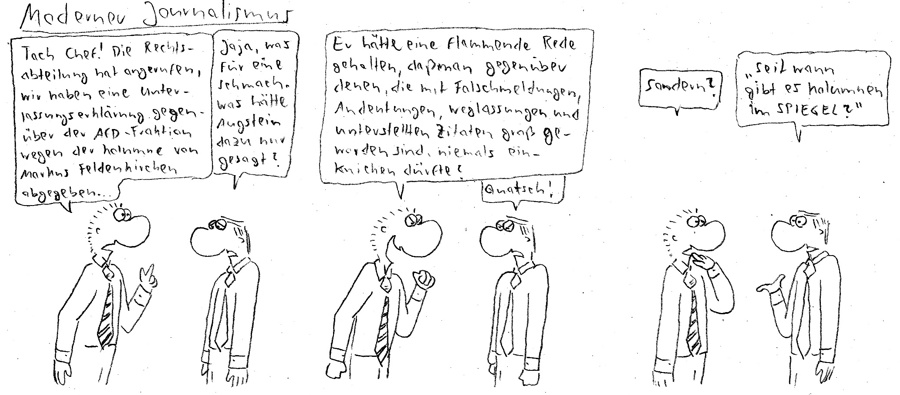 Moderner Journalismus
Tach Chef! Die Rechts-
abteilung hat angerufen,
wir haben eine Unter-
lassungserklärung gegen-
über der AfD-Fraktion
wegen der Kolumne von
Markus Feldenkirchen
abgegeben...
Jaja, was
für eine
Schmach.
Was hätte
Augstein
dazu nur
gesagt?
Er hätte eine flammende Rede
gehalten, daß man gegenüber
denen, die mit Falschmeldungen,
Andeutungen, Weglassungen und
unterstellten Zitaten groß ge-
worden sind, niemals ein-
knicken dürfte?
Quatsch!
Sondern?
„Seit wann
gibt es Kolumnen
im SPIEGEL?"